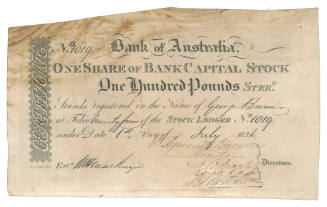 No. 1019. Bank of Australia.
ONE SHARE OF BANK CAPITAL STOCK
One Hundred Pounds STERG.
Stands registered in the Name of George Bunn
at Folio twenty four of the STOCK LEDGER No. 1019.
under Date 1st day of July 1826.
Directors.
Entd.